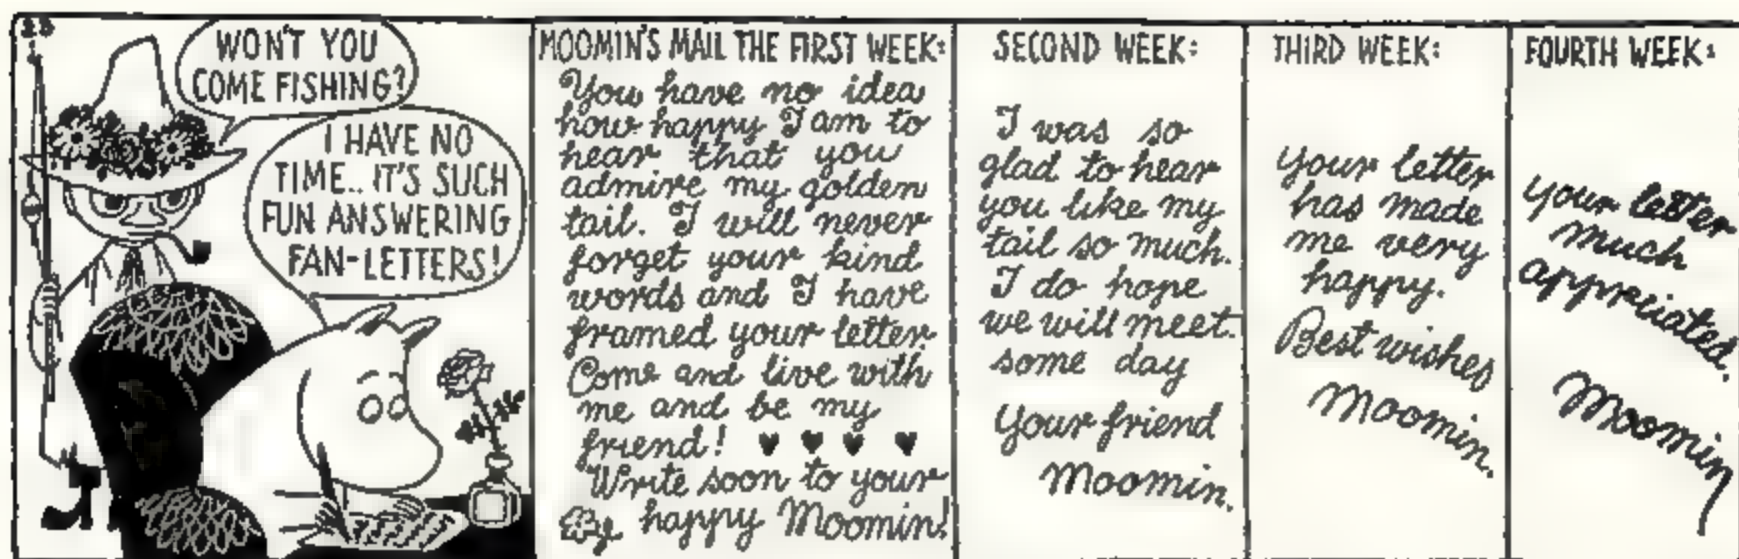 23
WON'T YOU
COME FISHING?
I HAVE NO
TIME.. IT'S SUCH
FUN ANSWERING
FAN-LETTERS!
MOOMIN'S MAIL THE FIRST WEEK:
You have no idea
how happy I am to
hear that you
admire my golden
tail. I will never
forget your kind
words and I have
framed your letter
Come and live with
me and be my
friend! ♥ ♥ ♥ ♥
Write soon to your
happy Moomin!
SECOND WEEK:
I was so
glad to hear
you like my
tail so much.
I do hope
we will meet.
some day
Your friend
Moomin.
THIRD WEEK:
Your letter
has made
me very
happy.
Best wishes
Moomin.
FOURTH WEEK:
Your letter
much
appreciated.
Moomin